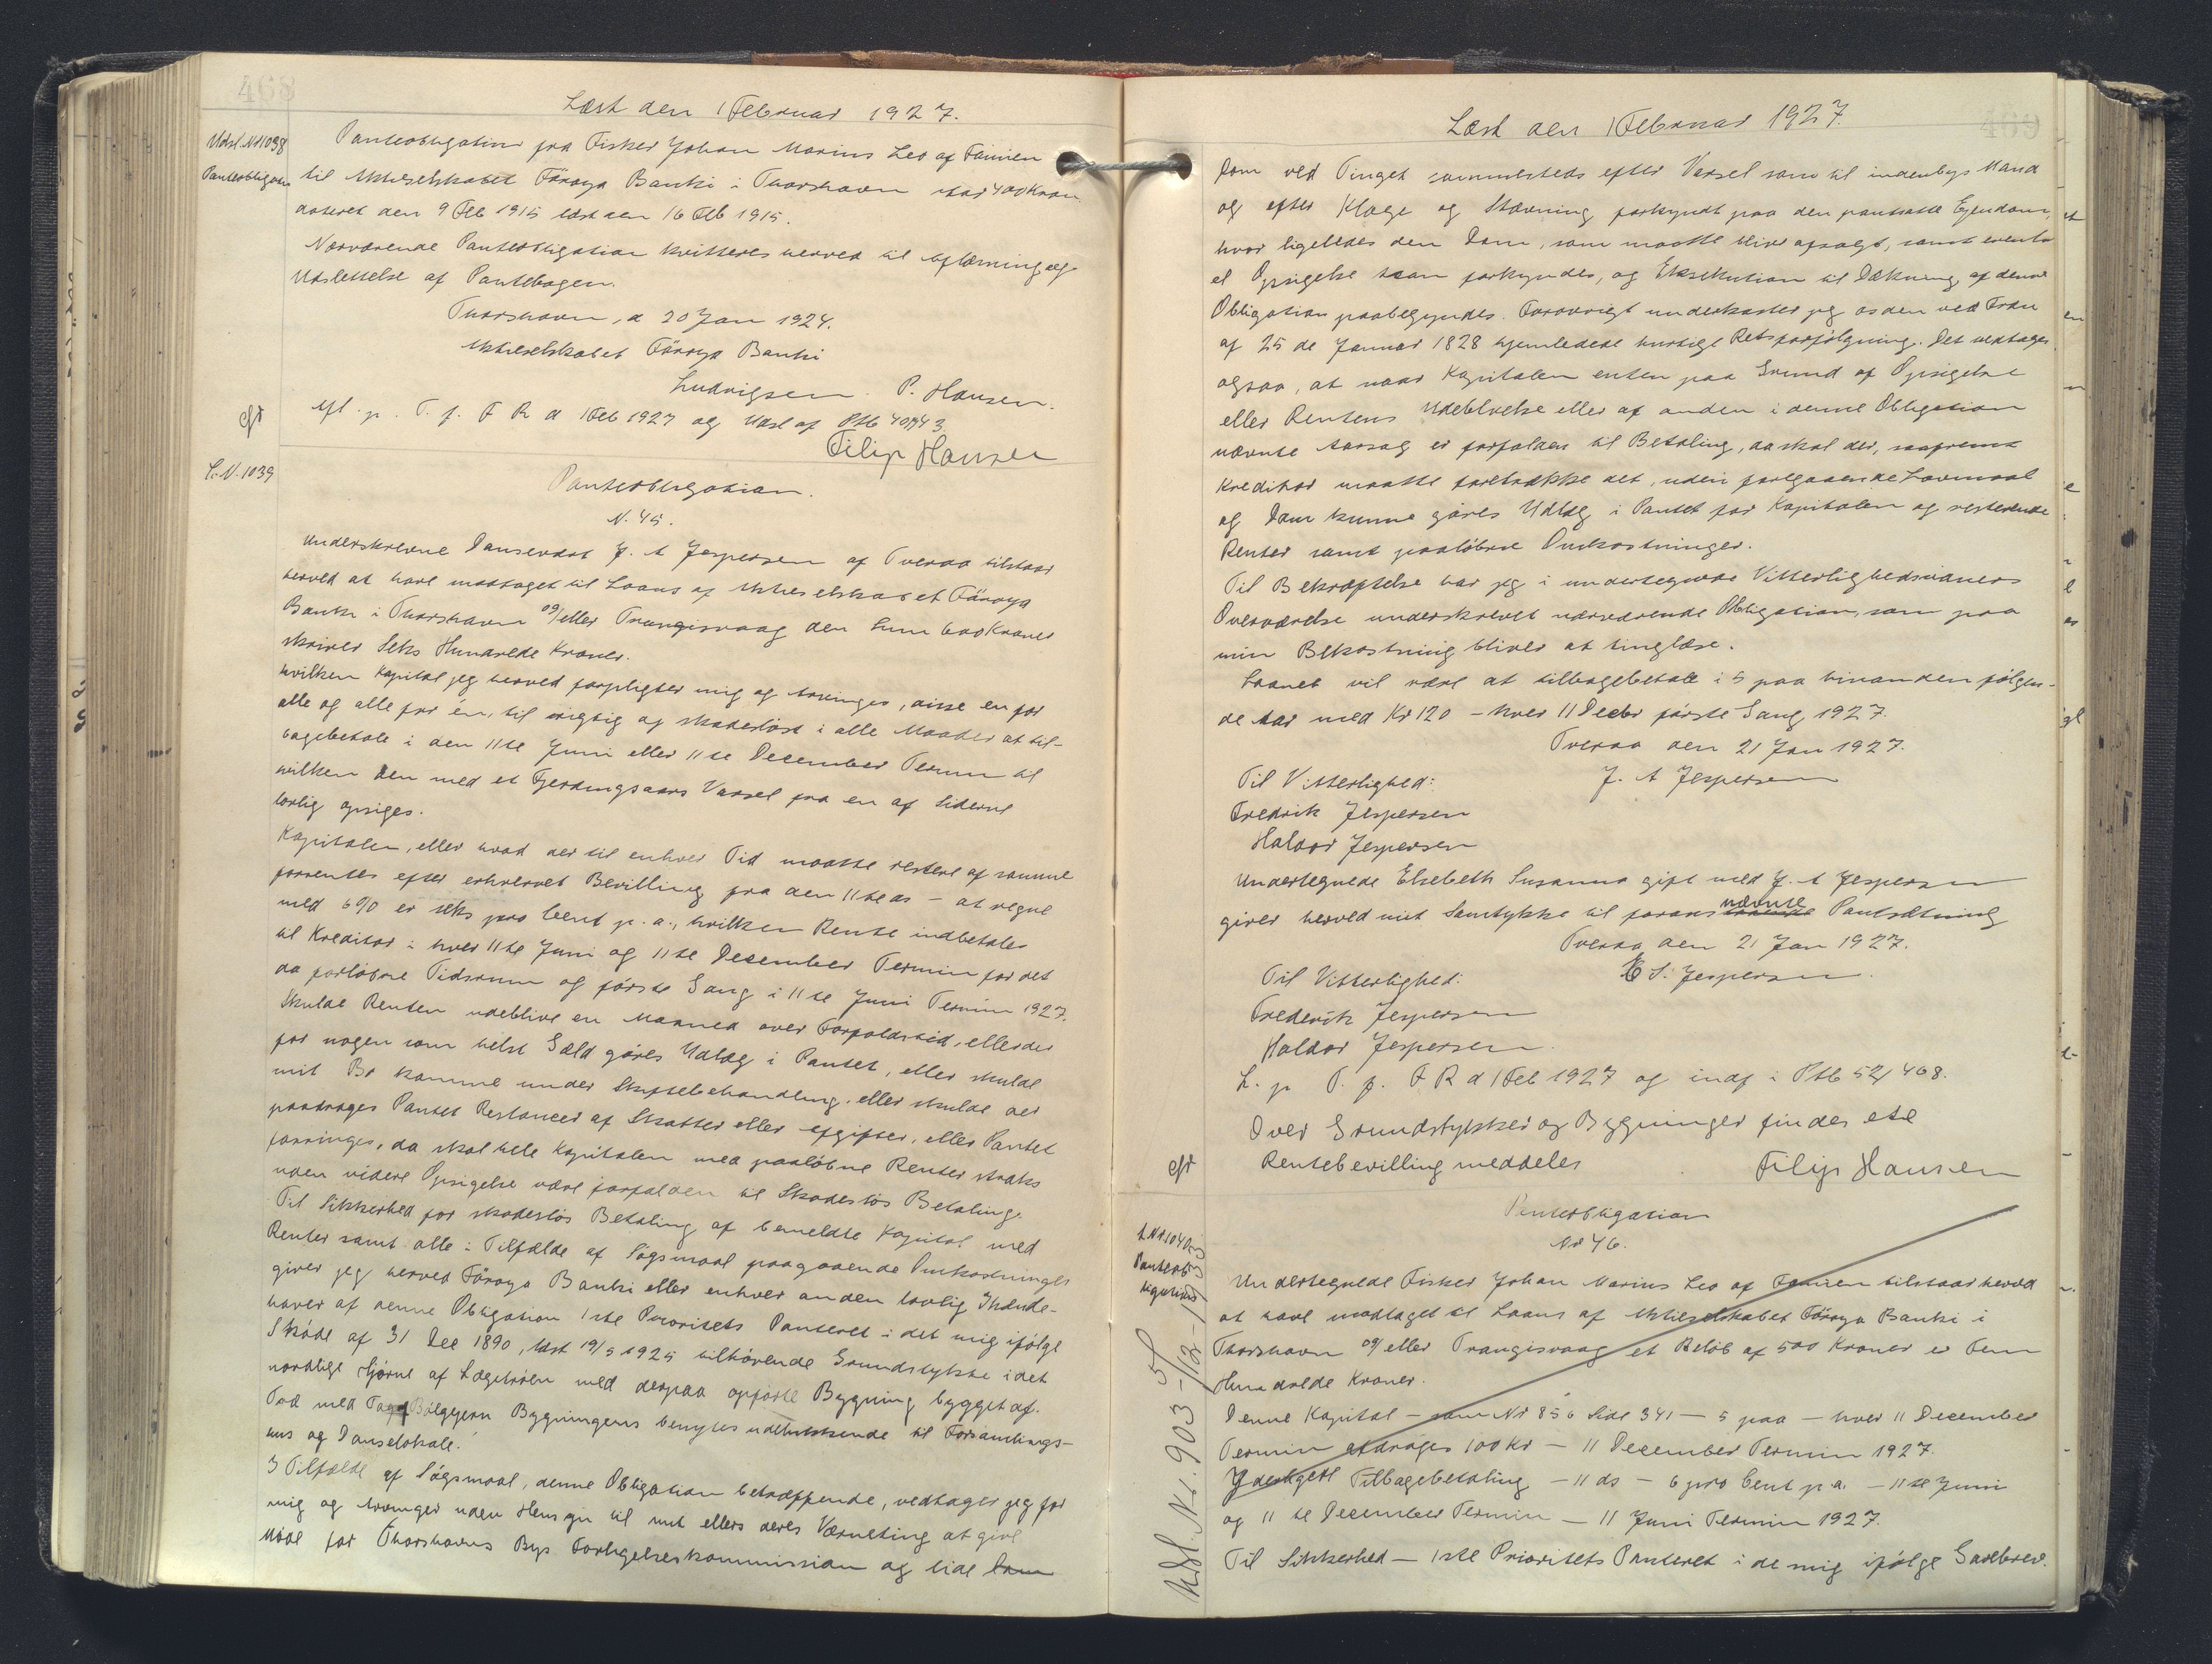 468
Læst den 1 Februar 1927.
Udsl. Nr 1038
Panteobligation
Panteobligation fra Fisker Johan Marius Leo af Famien
til Aktieselskabet Föroya Banki i Thorshavn stor 400 Kroner
dateret den 9 Feb 1915 læst den 16 Feb 1915.
Nærværende Panteobligation kvitteres herved til Aflæsning og
Udslettelse af Pantebogen.
Thorshavn, d 20 Jan 1927.
Aktieselskabet Föroya Banki
Ludvigsen. P. Hansen.
Afl. p. T. f. F R d 1 Feb 1927 og Udsl af Ptb
Filip Hansen
L.N. 1039
Panteobligation.
N. 45.
Underskrevne J. A Jespersen af Tveraa tilstaar
herved at have modtaget til Laans af Aktieselskabet Föroya
Banki i Thorshavn og/eller Trangisvaag den Sum 600 Kroner
skriver Seks Hundrede Kroner.
hvilken Kapital jeg herved forpligter mig og Arvinger, disse en for
alle og alle for én, til rigtig og skadesløst i alle Maader at til-
bagebetale i den 11te Juni eller 11te December Termin til
hvilken den med et Fjerdingsaars Varsel fra en af Siderne
lovlig opsiges.
Kapitalen, eller hvad der til enhver Tid maatte restere af samme
forrentes efter erhvervet Bevilling fra den 11te ds - at regne
med 6% er seks pro Cent p. a., hvilken Rente indbetales
til Kreditor i hver 11te Juni og 11te December Termin for det
da forløbne Tidsrum og første Gang i 11te Juni Termin 1927.
Skulde Renten udeblive en Maaned over Forfaldstid, eller der
for nogen som helst Gæld gøres Udlæg i Pantet, eller skulde
mit Bo komme under Skiftebehandling, eller skulde der
paadrages Pantet Restancer af Skatter eller Afgifter, eller Pantet
forringes, da skal hele Kapitalen med paaløbne Renter straks
uden videre Opsigelse være forfalden til Skadesløs Betaling.
Til Sikkerhed for skadesløs Betaling af bemeldte Kapital med
Renter samt alle i Tilfælde af Søgsmaal paagaaende Omkostninger
giver jeg herved Föroya Banki eller enhver anden lovlig Ihænde-
haver af denne Obligation 1ste Prioritets Panteret i det mig ifølge
Skøde af 31 Dec 1890, læst 19/5 1925 tilhørende Grundstykke i det
nordlige Hjørne af med derpaa opførte Bygning bygget af
Træ med Tag af Bølgejern Bygningens benyttes udelukkende til Forsamlings-
hus og Danselokale.
I Tilfælde af Søgsmaal, denne Obligation betræffende, vedtager jeg for
mig og Arvinger uden Hensyn til mit ellers deres Værneting at give
Møde for Thorshavns Bys Forligelseskommission og lide Dom
469
Læst den 1 Februar 1927.
Dom ved Tinget sammesteds efter Varsel som til indenbys Mand
og efter Klage og Stævning forkyndt paa den pantsatte Ejendom,
hvor ligeledes den Dom, som maatte blive afsagt, samt eventu
el Opsigelse kan forkyndes, og Eksekution til Dækning af denne
Obligation paabegyndes. Forøvrigt underkaster jeg os den ved Frdn
af 25 de Januar 1828 hjemledede hurtige Retsforfølgning. Det vedtages
ogsaa, at naar Kapitalen enten paa Grund af Opsigelse
eller Rentens Udeblivelse eller af anden i denne Obligation
nævnte Aarsag er forfalden til Betaling, da skal der, saafremt
Kreditor maatte foretrække det, uden foregaaende Lovmaal
og Dom kunne gøres Udlæg i Pantet for Kapitalen og resterende
Renter samt paaløbne Omkostninger.
Til Bekræftelse har jeg i undertegnede Vitterlighedsvidners
Overværelse underskrevet nærværende Obligation, som paa
min Bekostning bliver at tinglæse.
Laanet vil være at tilbagebetale i 5 paa hinanden følgen-
de Aar med Kr 120 - hver 11 Decbr første Gang 1927.
Tveraa den 21 Jan 1927.
Til Vitterlighed: J. A Jespersen
Fredrik Jespersen
Haldor Jespersen
Undertegnede Elsebeth Susanna gift med J. A Jespersen
giver herved mit Samtykke til forans nævnte Pantsætning
Tveraa den 21 Jan 1927.
Til Vitterlighed: E S. Jespersen.
Frederik Jespersen
Haldor Jespersen.
L. p T. f. F R d 1 Feb 1927 og indf i Ptb 52/468.
Over Grundstykker og Bygninger findes ete
Rentebevilling meddeles Filip Hansen
L Nr 1040
Panteob
ligation
Panteobligation
Nr 46.
Undertegnede Fisker Johan Marius Leo af Famien tilstaar herved
at have modtaget til Laans af Aktieselskabet Föroya Banki i
Thorshavn og/eller Trangisvaag et Beløb af 500 Kroner er Fem
Hundrede Kroner.
Denne Kapital - som Nr 856 Side 341 - 5 paa - hver 11 December
Termin afdrages 100 Kr - 11 December Termin 1927.
Yderligere Tilbagebetaling - 11 ds - 6 pro Cent p a. - 11te Juni
og 11 te December Termin - 11 Juni Termin 1927.
Til Sikkerhed - 1ste Prioritets Panteret i de mig ifølge Gavebrev.
Udsl. Nr. 903